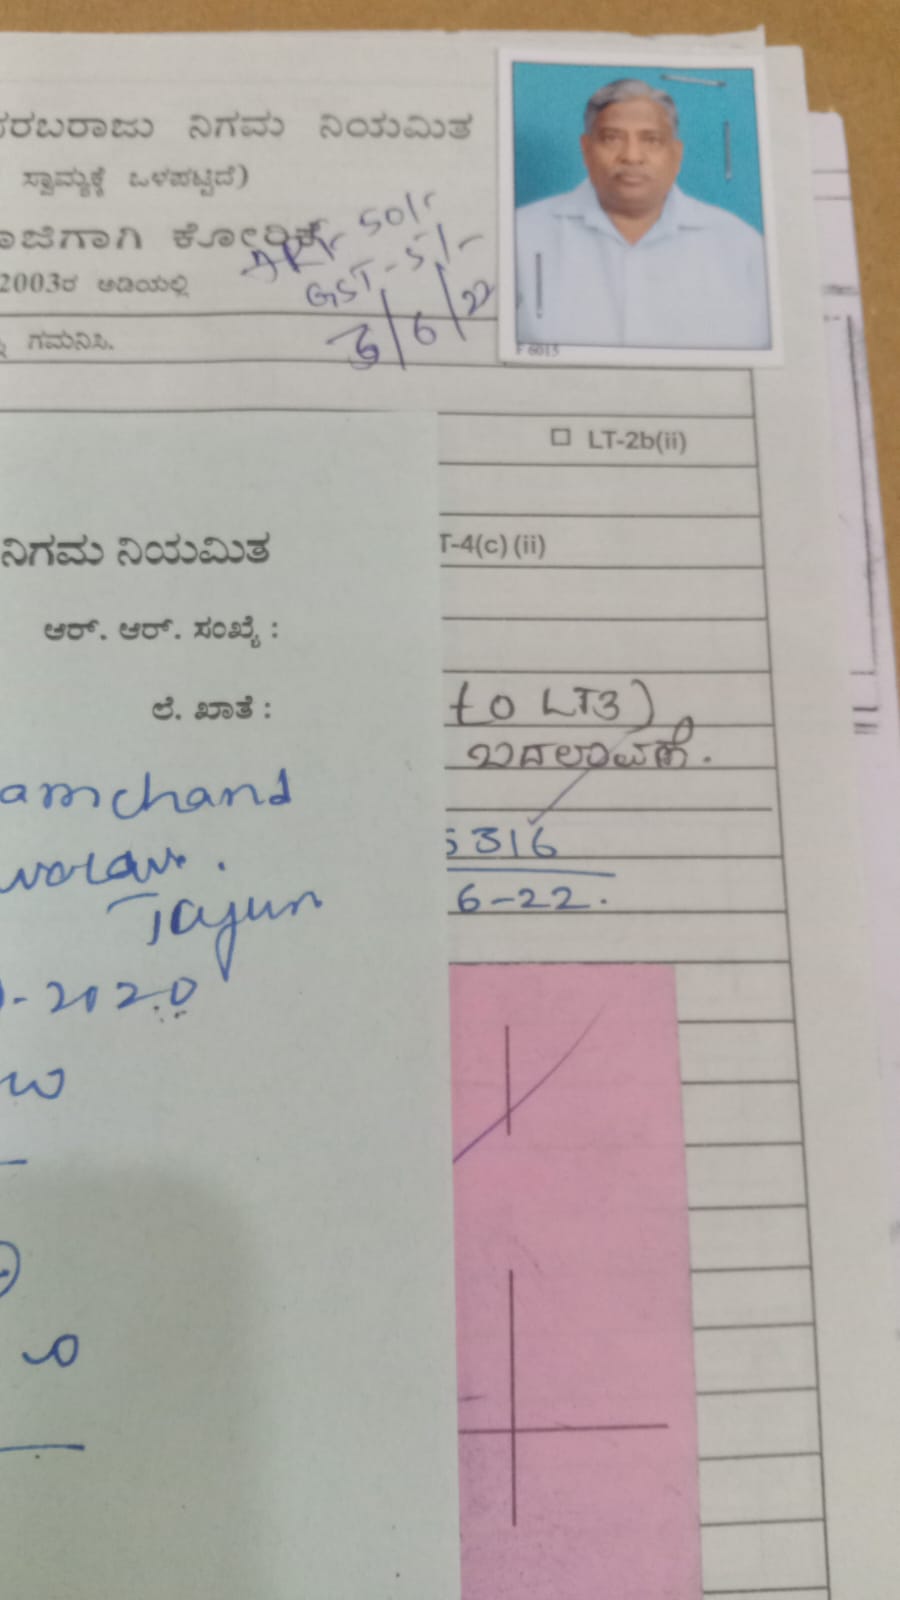 ಸರಬರಾಜು ನಿಗಮ ನಿಯಮಿತ
ಸ್ವಾಮ್ಯಕ್ಕೆ ಒಳಪಟ್ಟಿದೆ)
ರಾಜಿಗಾಗಿ ಕೋರಿಕೆ
50/-
GST - 5/-
2003ರ ಅಡಿಯಲ್ಲಿ
3/6/22
ಗಮನಿಸಿ.
F 6015
LT-2b(ii)
T-4(c) (ii)
ನಿಗಮ ನಿಯಮಿತ
ಆರ್. ಆರ್. ಸಂಖ್ಯೆ :
ಲೆ. ಖಾತೆ :
to LT3)
ಬದಲಾವಣೆ.
amchand
5316
6-22.
Tajun
-2020